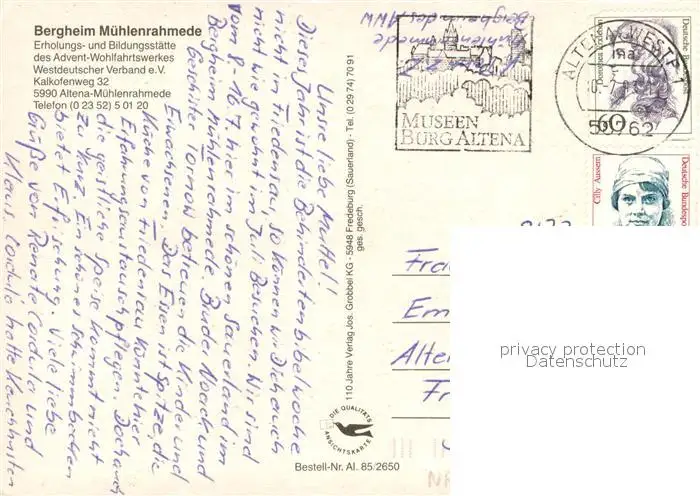 Bergheim Mühlenrahmede
Erholungs- und Bildungsstätte
des Advent-Wohlfahrtswerkes
Westdeutscher Verband e.V.
Kalkofenweg 32
5990 Altena-Mühlenrahmede
Telefon (0 23 52) 5 01 20
Unse liebe Mutte!!
Dieses Jahr ist die Behindertenbibelwoche
nicht in Friedensau, so können wir Dich auch
nicht wie gewohnt im Juli Besuchen. Wir sind
vom 8-16.7. hier im schönen Sauerland im
Bergheim Mühlenrahmede. Bruder Noack und
Geschister Tornow betreuen die Kinder und
Erwachsenen. Das Essen ist Spitze, die
Küche von Friedensau könnte hier
Erfahrungsaustausch pflegen. Doch auch
die geistliche Speise kommt nicht
zu kurz. Ein schönes Schwimmbecken
bietet Erfrischung. Viele liebe
Grüße von Renate Cordula und
Klaus. Cordula hatte
110 Jahre Verlag Jos. Grobbel KG - 5948 Fredeburg (Sauerland) - Tel. (0 29 74) 70 91
ges. gesch.
DIE QUALITÄTS
ANSICHTSKARTE
Bestell-Nr. Al. 85/2650
Bergheim des AWW
MUSEEN
BURG ALTENA
ALTENA, WESTF 1
5990762
Dorothea Erxleben
Deutsche Bundespost
60
Cilly Aussem
Deutsche Bundespost
Fra
Em
Alte
Fr
privacy protection
Datenschutz